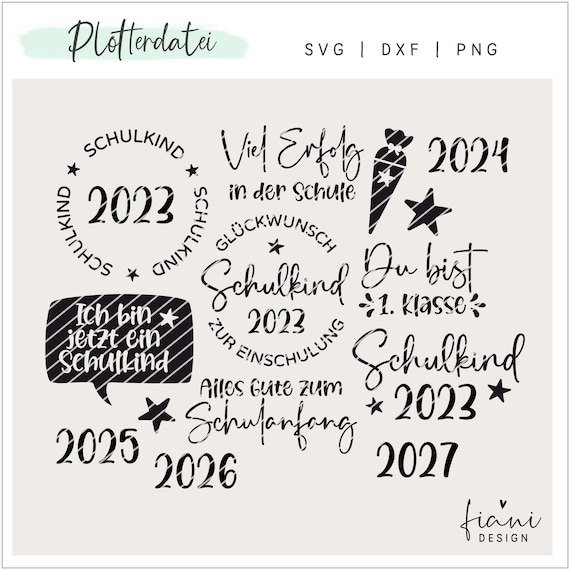 Plotterdatei
SVG | DXF | PNG
SCHULKIND
SCHULKIND
SCHULKIND
SCHULKIND
2023
Viel Erfolg
in der Schule
2024
GLÜCKWUNSCH
Schulkind
2023
ZUR EINSCHULUNG
Du bist
1. Klasse
Ich bin
jetzt ein
Schulkind
Alles Gute zum
Schulanfang
Schulkind
2023
2025
2026
2027
fiani
DESIGN